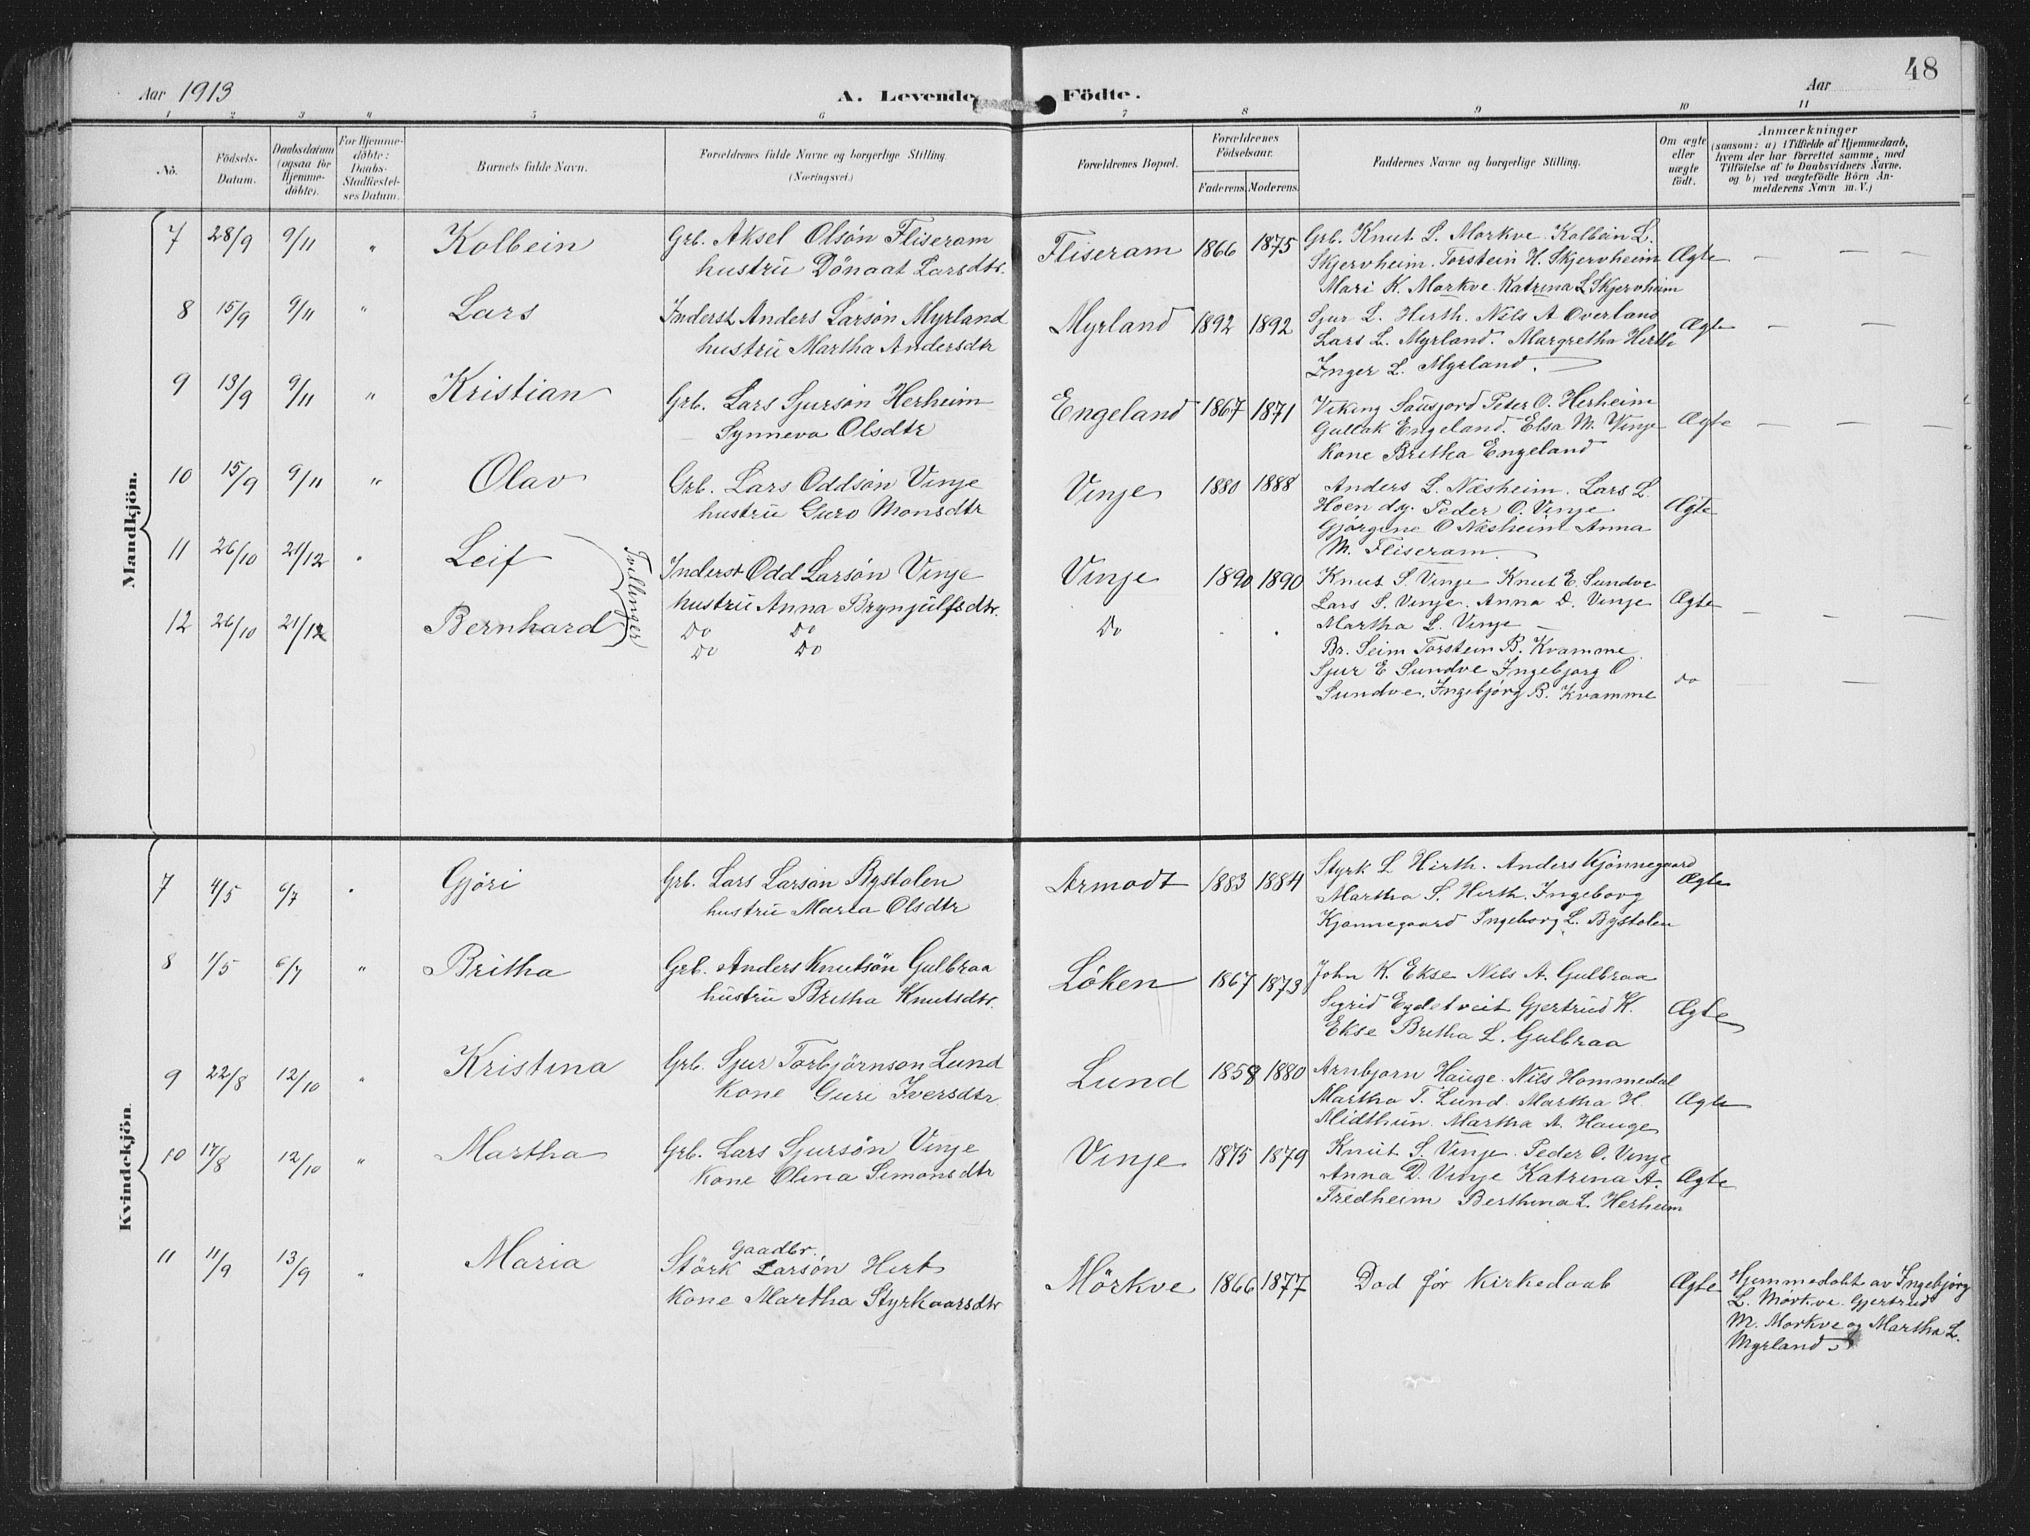 48
Aar 1913
A. Levende Födte.
Aar
1 2 3 4 5 6 7 8 9 10 11
No.
Födsels-
Datum.
Daabsdatum
(ogsaa for
Hjemme-
döbte).
For Hjemme-
döbte:
Daabs-
Stadfæstel-
ses Datum.
Barnets fulde Navn.
Forældrenes fulde Navne og borgerlige Stilling.
(Næringsvei.)
Forældrenes Bopæl.
Forældrenes
Födselsaar.
Faderens. Moderens.
Faddernes Navne og borgerlige Stilling.
Om ægte
eller
uægte
födt.
Anmærkninger
(saasom: a) i Tilfælde af Hjemmedaab,
hvem der har forrettet samme, med
Tilföielse af to Daabsvidners Navne.
og b) ved uægtefödte Börn An-
melderens Navn m.V.)
Mandkjön.
7 28/9 9/11 " Kolbein
Grb. Aksel Olsön Fliseram
hustru Dönaat Larsdtr.
Fliseram 1866 1875
Grb. Knut L. Mørkve. Kolbein L.
Skjervheim. Torstein H. Skjervheim
Mari K. Mørkve. Katrina L Skjervheim
Ægte — — —
8 15/9 9/11 " Lars
Inderst Anders Larsön Myrland
hustru Martha Andersdtr
Myrland 1892 1892
Sjur L. Hirth. Nils A Øverland
Lars L. Myrland. Margretha Hirth
Inger L. Myrland.
Ægte — —
9 13/9 9/11 " Kristian
Grb. Lars Sjursön Herheim
Synneva Olsdtr
Engeland 1867 1871
Viking Peter O. Herheim
Gullak Engeland. Elsa M. Vinje
Kone Britha Engeland
Ægte — — —
10 15/9 9/11 " Olav
Grb. Lars Oddsön Vinje
hustru Guro Monsdtr
Vinje 1880 1888
Anders L. Næsheim. Lars L.
Hoen d.y. Peder O. Vinje
Gjørgine O Næsheim Anna
M. Fliseram
Ægte
11 26/10 21/12 " Leif
Tvillinger
Inderst Odd Larsön Vinje
hustru Anna Brynjulfsdtr.
Vinje 1890 1890
Knut S. Vinje Knut E. Sundve
Lars S. Vinje. Anna D. Vinje
Martha L. Vinje —
Ægte — — —
12 26/10 21/12 Bernhard
Do Do
Do Do
Do . .
Br. Seim Torstein B. Kvamme
Sjur E Sundve Ingebjorg O
Sundve. Ingebjørg B. Kvamme
do —
Kvindekjön.
7 4/5 6/7 " Gjöri
Grb. Lars Larsön Bystölen
hustru Maria Olsdtr
Armodt 1883 1884
Styrk L Hirth. Anders Kjönnegaard
Martha S. Hirth. Ingeborg
Kjønnegaard Ingeborg L. Bystolen
Ægte
8 1/5 6/7 " Britha
Grb. Anders Knutsön Gulbraa
hustru Britha Knutsdtr.
Löken 1867 1873
John K. Ekse Nils A. Gulbraa
Sigrid Egdetveit Gjertrud K.
Ekse Britha L. Gulbraa
Ægte
9 22/8 12/10 " Kristina
Grb. Sjur Torbjörnson Lund
Kone Guri Iversdtr
Lund 1858 1880
Arnbjorn Hauge. Nils Hommedal
Martha T. Lund. Martha H.
Midthun. Martha A. Hauge
Ægte
10 17/8 12/10 " Martha
Grb. Lars Sjursön Vinje
Kone Olina Simonsdtr
Vinje 1875 1879
Knut S. Vinje. Peder O. Vinje
Anna D. Vinje Katrina A.
Fredheim Berthina L. Herheim
Ægte
11 11/9 13/9 " Maria
Gaadbr.
Störk Larsön Hirt
Kone Martha Styrkaarsdtr
Mörkve 1866 1877
Død før Kirkedaab
Ægte
Hjemmedøbt av Ingebjørg
L. Mörkve. Gjertrud
M. Mørkve og Martha L.
Myrland.